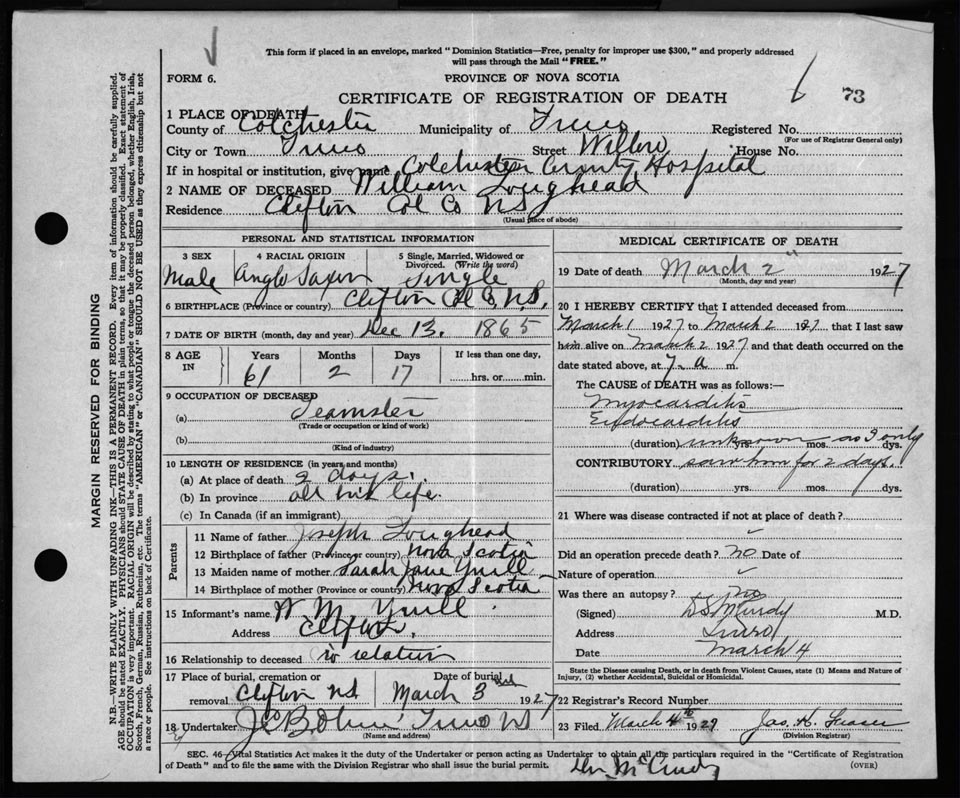 This form if placed in an envelope, marked "Dominion Statistics—Free, penalty for improper use $300," and properly addressed
will pass through the Mail "FREE."
FORM 6.
PROVINCE OF NOVA SCOTIA
73
CERTIFICATE OF REGISTRATION OF DEATH
1 PLACE OF DEATH
County of Colchester Municipality of Truro Registered No.
(For use of Registrar General only)
City or Town Truro Street Willow House No.
If in hospital or institution, give name Colchester County Hospital
2 NAME OF DECEASED William Loughead
Residence Clifton Col Co NS
(Usual place of abode)
PERSONAL AND STATISTICAL INFORMATION
3 SEX 4 RACIAL ORIGIN 5 Single, Married, Widowed or
Divorced. (Write the word)
Male Anglo Saxon Single
6 BIRTHPLACE (Province or country) Clifton Col Co. N.S.
7 DATE OF BIRTH (month, day and year) Dec 13. 1865
8 AGE IN Years Months Days If less than one day,
61 2 17 hrs. or min.
9 OCCUPATION OF DECEASED
(a) Teamster
(Trade or occupation or kind of work)
(b)
(Kind of industry)
10 LENGTH OF RESIDENCE (in years and months)
(a) At place of death 2 days.
(b) In province all his life.
(c) In Canada (if an immigrant)
Parents
11 Name of father Joseph Loughead
12 Birthplace of father (Province or country) Nova Scotia
13 Maiden name of mother Sarah Jane Yuill
14 Birthplace of mother (Province or country) Nova Scotia
15 Informant's name W M Yuill
Address Clifton.
16 Relationship to deceased no relation
17 Place of burial, cremation or Date of burial
removal Clifton N.S. March 3rd 1927
18 Undertaker Truro NS
(Name and address)
MEDICAL CERTIFICATE OF DEATH
19 Date of death March 2" 1927
(Month, day and year)
20 I HEREBY CERTIFY that I attended deceased from
March 1 1927 to March 2 1927 that I last saw
him alive on March 2 1927 and that death occurred on the
date stated above, at 7 a m.
The CAUSE of DEATH was as follows:
Myocarditis
Endocarditis
(duration) unknown yrs. mos. as I only dys.
CONTRIBUTORY saw him for 2 days.
(duration) yrs. mos. dys.
21 Where was disease contracted if not at place of death?
Did an operation precede death? no Date of
Nature of operation
Was there an autopsy? no
(Signed) M.D.
Address Truro
Date March 4
State the Disease causing Death, or in death from Violent Causes, state (1) Means and Nature of
Injury, (2) whether Accidental, Suicidal or Homicidal.
22 Registrar's Record Number
23 Filed March 4th 1927 Jas. K. Fraser
(Division Registrar)
SEC. 46—Vital Statistics Act makes it the duty of the Undertaker or person acting as Undertaker to obtain all the particulars required in the "Certificate of Registration
of Death" and to file the same with the Division Registrar who shall issue the burial permit.
(OVER)
MARGIN RESERVED FOR BINDING
N.B.—WRITE PLAINLY WITH UNFADING INK—THIS IS A PERMANENT RECORD. Every item of information should be carefully supplied.
AGE should be stated EXACTLY. PHYSICIANS should STATE CAUSE OF DEATH in plain terms, so that it may be properly classified. Exact statement of
OCCUPATION is very important. RACIAL ORIGIN will be described by stating to what people or tongue the deceased person belonged, whether English, Irish,
Scotch, French, German, Russian, Ruthenian, etc. The terms "AMERICAN" or "CANADIAN" SHOULD NOT BE USED as they express citizenship but not
a race or people. See instructions on back of Certificate.